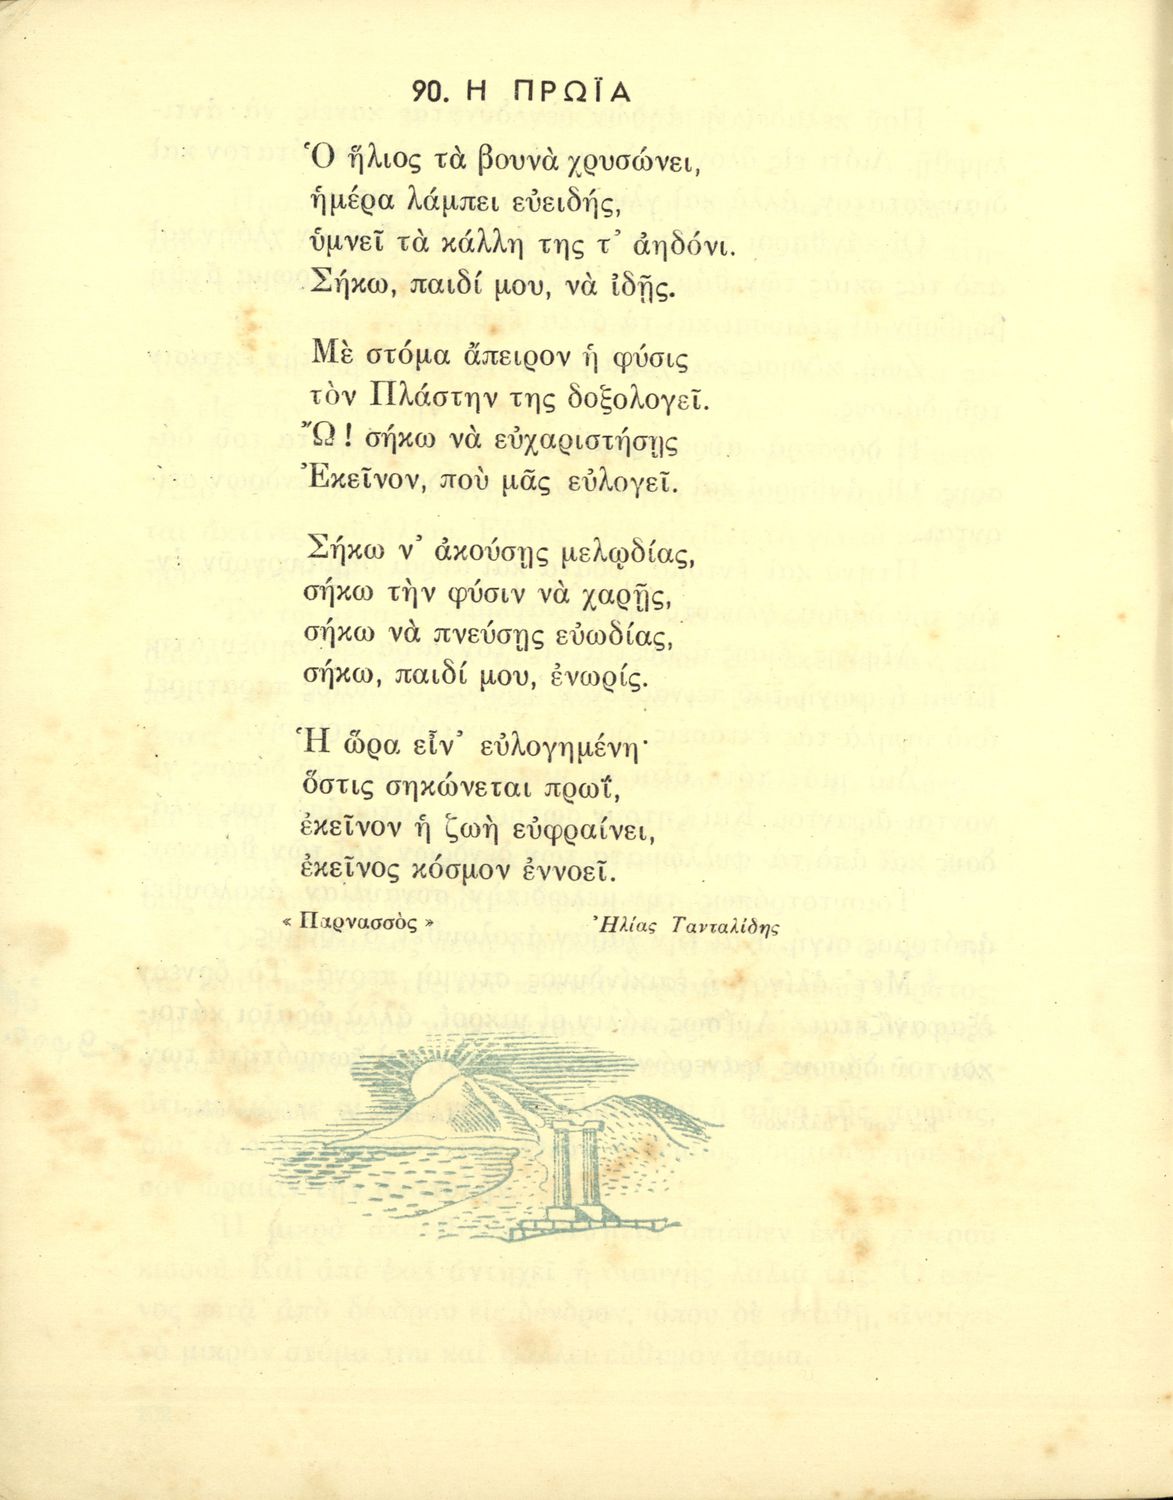 90. Η ΠΡΩΪΑ
Ὁ ἥλιος τὰ βουνὰ χρυσώνει,
ἡμέρα λάμπει εὐειδής,
ὑμνεῖ τὰ κάλλη της τ’ ἀηδόνι.
Σήκω, παιδί μου, νὰ ἰδῇς.
Μὲ στόμα ἄπειρον ἡ φύσις
τὸν Πλάστην της δοξολογεῖ.
Ὢ! σήκω νὰ εὐχαριστήσῃς
Ἐκεῖνον, ποὺ μᾶς εὐλογεῖ.
Σήκω ν’ ἀκούσῃς μελῳδίας,
σήκω τὴν φύσιν νὰ χαρῇς,
σήκω νὰ πνεύσῃς εὐωδίας,
σήκω, παιδί μου, ἐνωρίς.
Ἡ ὥρα εἶν’ εὐλογημένη·
ὅστις σηκώνεται πρωΐ,
ἐκεῖνον ἡ ζωὴ εὐφραίνει,
ἐκεῖνος κόσμον ἐννοεῖ.
« Παρνασσὸς » Ἠλίας Τανταλίδης